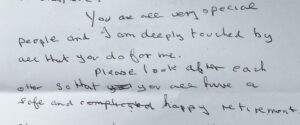 You are all very special
people and I am deeply touched by
all that you do for me.
Please look after each
other so that you all have a
safe and happy retirement